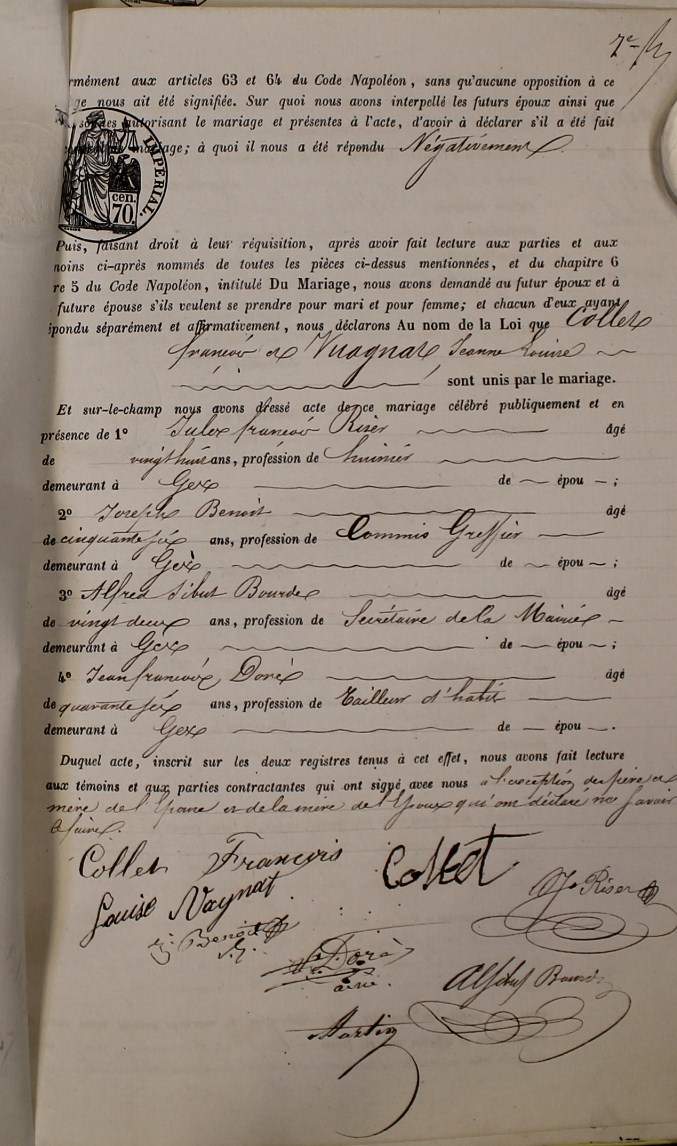 7e
rmément aux articles 63 et 64 du Code Napoléon, sans qu'aucune opposition à ce
ge nous ait été signifiée. Sur quoi nous avons interpellé les futurs époux ainsi que
autorisant le mariage et présentes à l'acte, d'avoir à déclarer s'il a été fait
mariage; à quoi il nous a été répondu Négativement
IMPERIAL.
cen.
70.
Puis, faisant droit à leur réquisition, après avoir fait lecture aux parties et aux
moins ci-après nommés de toutes les pièces ci-dessus mentionnées, et du chapitre 6
re 5 du Code Napoléon, intitulé Du Mariage, nous avons demandé au futur époux et à
future épouse s'ils veulent se prendre pour mari et pour femme; et chacun d'eux ayant
épondu séparément et affirmativement, nous déclarons Au nom de la Loi que Collet
françois et Vuagnat Jeanne Louise
sont unis par le mariage.
Et sur-le-champ nous avons dressé acte de ce mariage célébré publiquement et en
présence de 1° Jules françois Riser âgé
de vingt huit ans, profession de huissier
demeurant à Gex de épou ;
2° Joseph Benoit âgé
de cinquante six ans, profession de Commis Greffier
demeurant à Gex de épou ;
3° Alfred Sibut Bourde âgé
de vingt deux ans, profession de Secrétaire de la Mairie
demeurant à Gex de épou ;
4° Jean françois Doré âgé
de quarante six ans, profession de Tailleur d'habits
demeurant à Gex de épou .
Duquel acte, inscrit sur les deux registres tenus à cet effet, nous avons fait lecture
aux témoins et aux parties contractantes qui ont signé avec nous à l'exception des père et
mère de l'Epouse et de la mère de l'Epoux qui ont déclaré ne savoir
le faire.
Collet François Collet
Louise Vuagnat J. Riser
J. Benoit
Doré
ainé
A Sibut Bourde
Martin